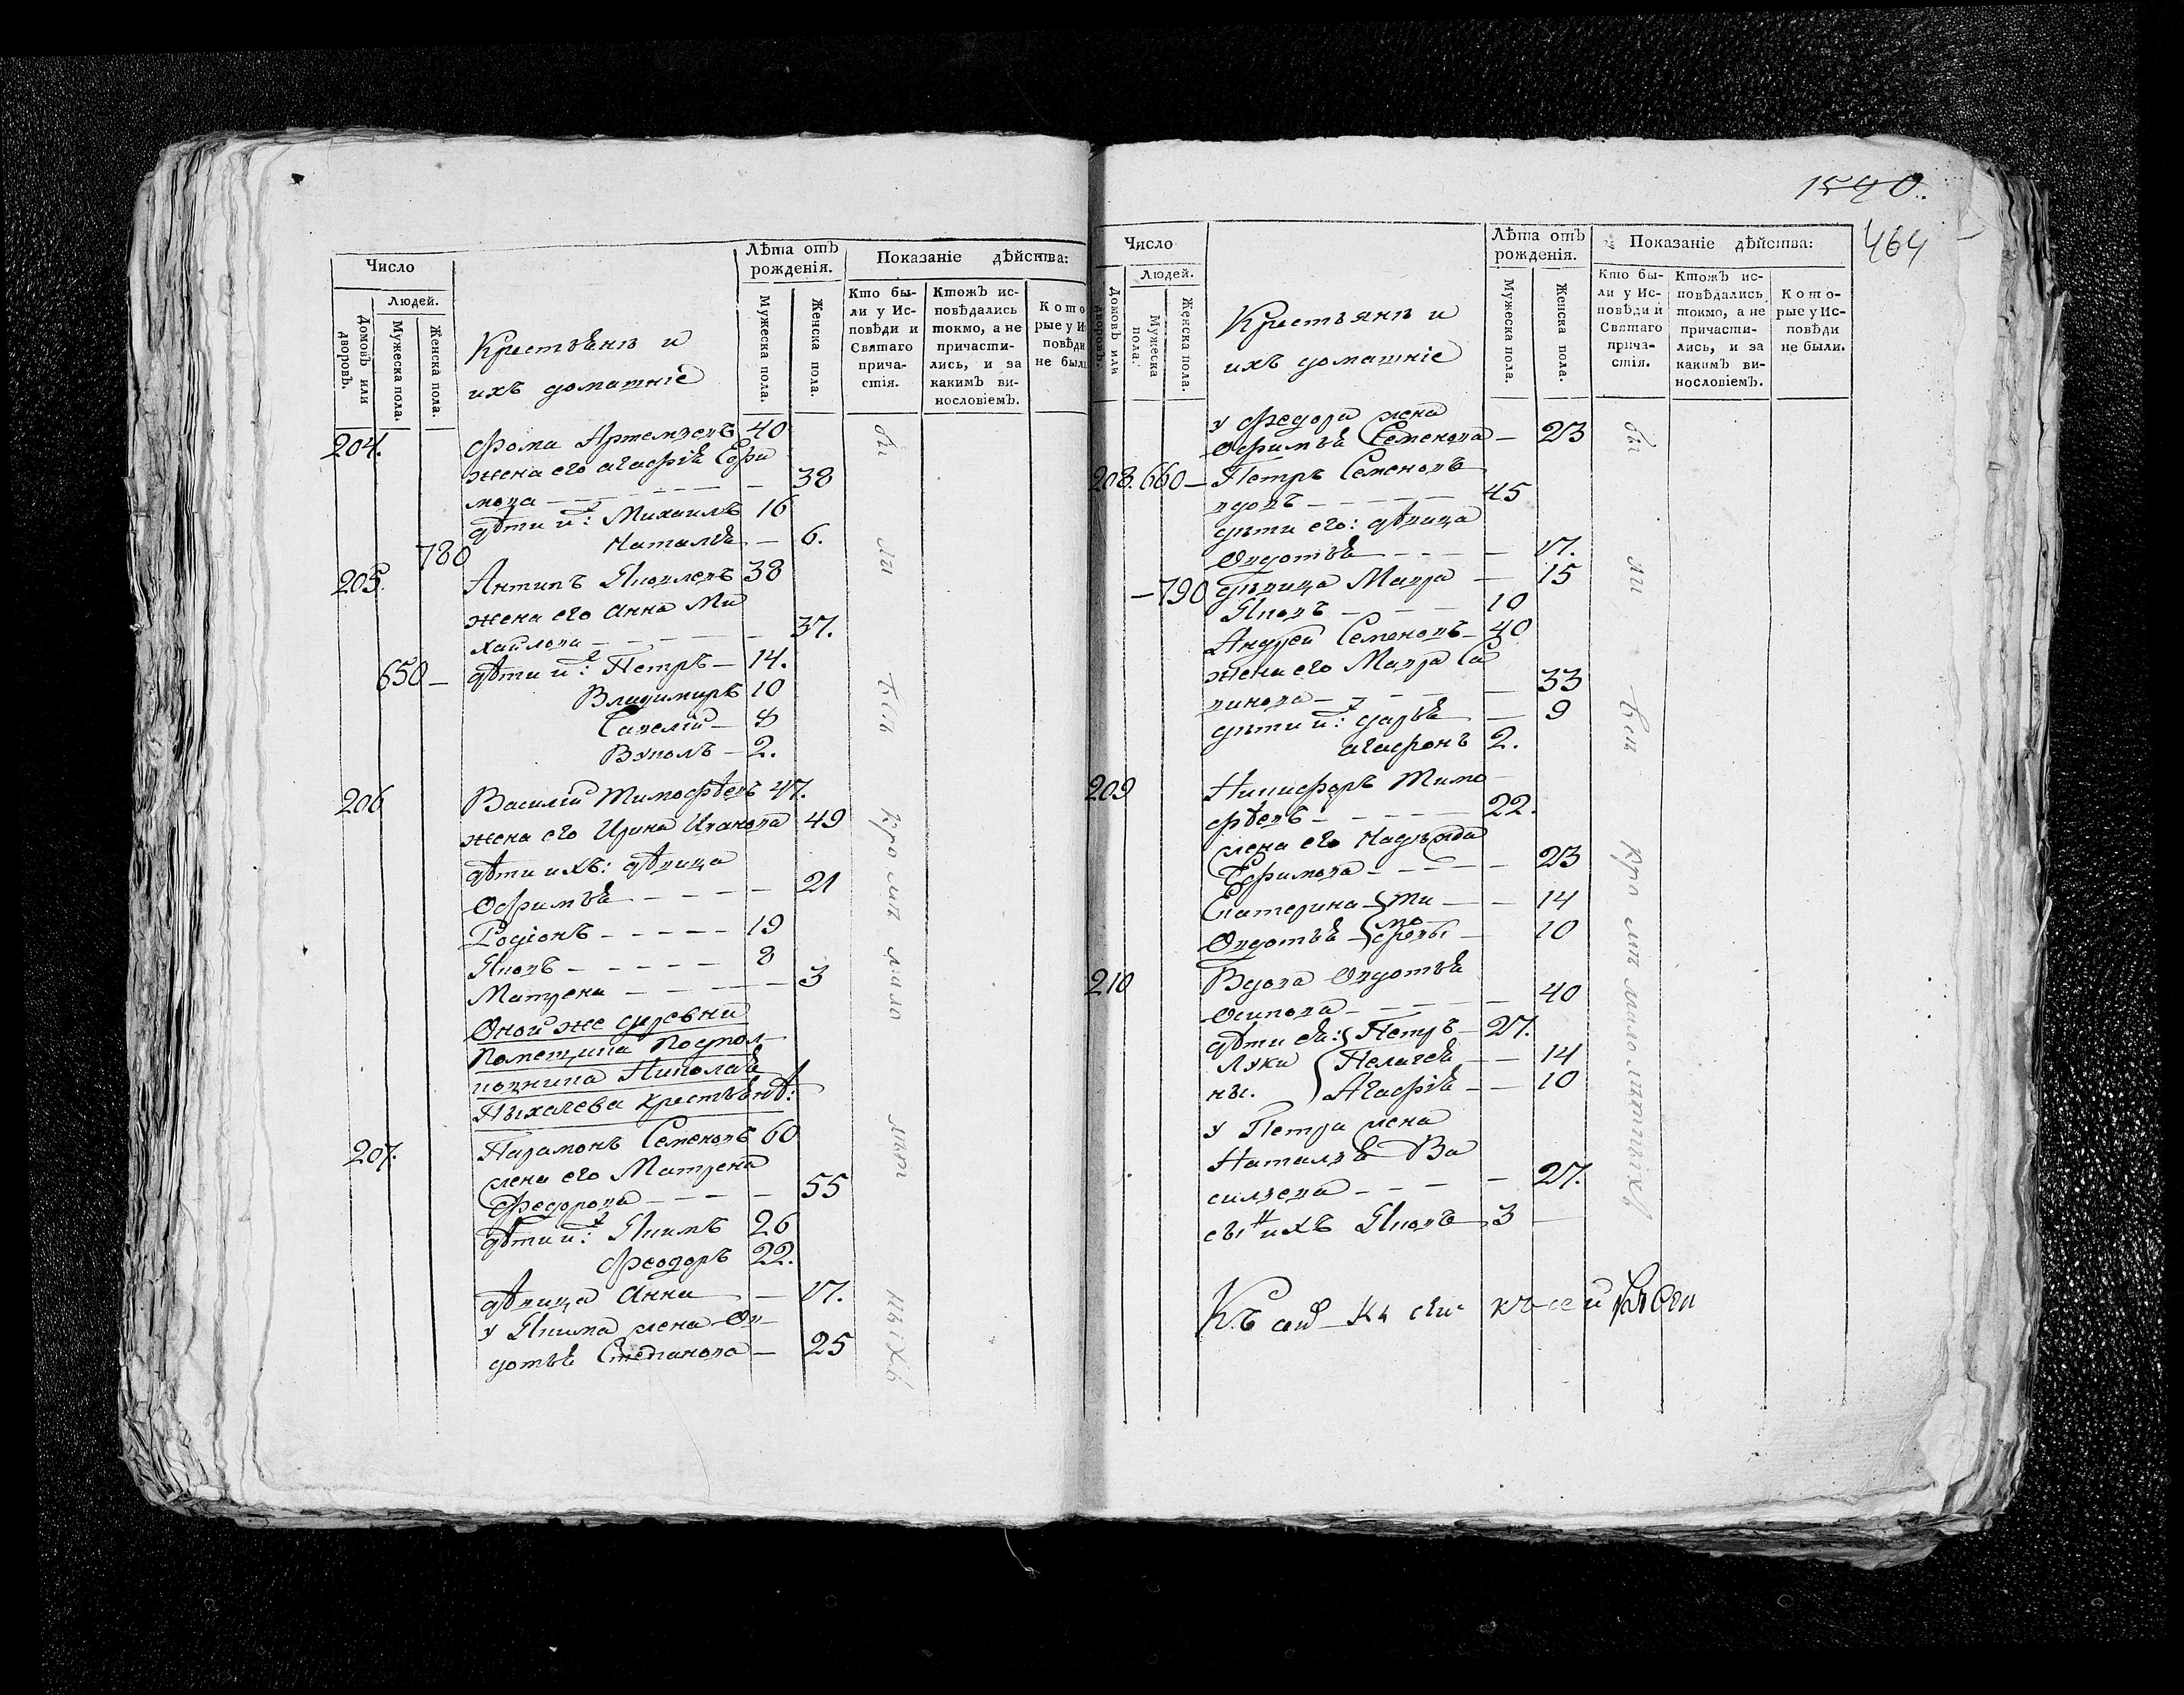 Число
Людей.
Домовъ или дворовъ.
Мужеска пола.
Женска пола.
Крестьянъ и
ихъ домашніе
Лѣта отъ рожденія.
Мужеска пола.
Женска пола.
Показаніе дѣйства:
Кто бы-
ли у Ис-
повѣди и
Святаго
прича-
стія.
Ктожъ ис-
повѣдались
токмо, а не
причасти-
лись, и за
какимъ ви-
нословіемъ.
Кото
рые у Ис
повѣди
не был
204. Фома Артемьевъ 40
жена его агафія Ефи
мова — 38
дѣти их: Михаилъ 16
780 Наталья — 6.
205. Антипъ Яковлевъ 38
жена его Анна Ми
хайлова — 37.
650 — дѣти их: Петръ — 14.
Владимиръ 10
Савелій — 8
Вуколъ — 2.
206 Василій Тимофѣевъ 47.
жена его Ирина Иванова 49
дѣти ихъ: дѣвица
Офимья — 21
Родіонъ — 19
Яковъ — 8
Матрена — 3
Оной же деревни
помещика Подпол
ковника Николая
Пыхачева крестьянѣ:
207. Парамонъ Семеновъ 60
жена его Матрена
Федорова — 55
дѣти их: Якимъ 26
Феодоръ 22.
дѣвица Анна — 17.
у Якима жена Ов
дотья Степанова — 25
бы
ли
всѣ
кромѣ мало
лѣт
ныхъ
1540.
464
Число
Людей.
Домовъ или дворовъ.
Мужеска пола.
Женска пола.
Крестьянъ и
ихъ домашніе
Лѣта отъ рожденія.
Мужеска пола.
Женска пола.
Показаніе дѣйства:
Кто бы-
ли у Ис-
повѣди и
Святаго
прича-
стія.
Ктожъ ис-
повѣдались
токмо, а не
причасти-
лись, и за
какимъ ви-
нословіемъ.
Кото-
рые у Ис-
повѣди
не были.
у Федора жена
Офимья Семенова — 23
208. 660 — Петръ Семеновъ
вдовъ — 45
дѣти его: дѣвица
Овдотья — 17.
— 790 дѣвица Мавра — 15
Яковъ — 10
Андрей Семеновъ — 40
жена его Мавра Са
винова — 33
дѣти их: дарья — 9
агафонъ 2.
209 Никифоръ Тимо
фѣевъ — 22.
жена его Надѣжда
Ефимова — 23
Екатерина — Ти — 14
Овдотья — мофѣевы — 10
210 Вдова Овдотья
Осипова — 40
дѣти ея: Петръ — 27.
Луки Пелагея — 14
ны. Агафія — 10
у Петра жена
Наталья Ва
сильева — 27.
сынъ ихъ Яковъ 3
бы
ли
всѣ
кромѣ малолѣтныхъ